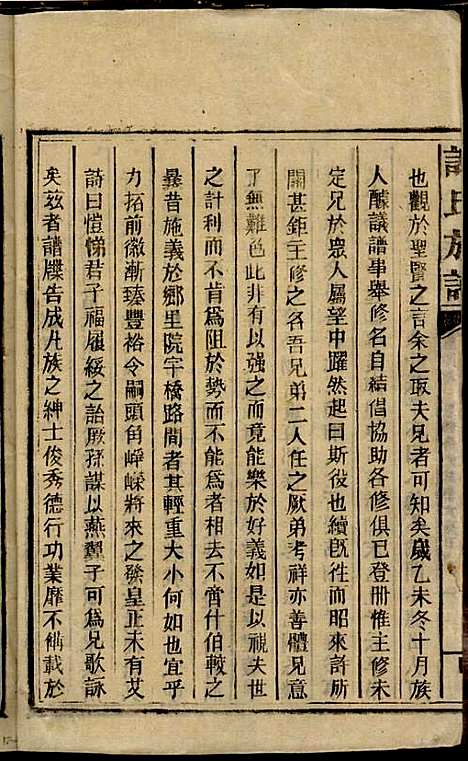 也觀於聖賢之言余之取夫兄者可知矣歲乙未冬十月族
人醵議譜事舉修名自結倡協助各修俱已登冊惟主修未
定兄於衆人屬望中躍然起曰斯役也續旣徃而昭來許所
關甚鉅主修之名吾兄弟二人任之厥弟考祥亦善體兄意
了無難色此非有以强之而竟能樂於好義如是以視夫世
之計利而不肯爲阻於勢而不能爲者相去不啻什伯較之
曩昔施義於鄉里院宇橋路間者其輕重大小何如也宜乎
力拓前徽漸臻豐裕令嗣頭角崢嶸將來之發皇正未有艾
詩曰愷悌君子福履綏之詒厥孫謀以燕翼子可爲兄歌詠
矣茲者譜牒告成凡族之紳士俊秀德行功業靡不備載於
氏族譜